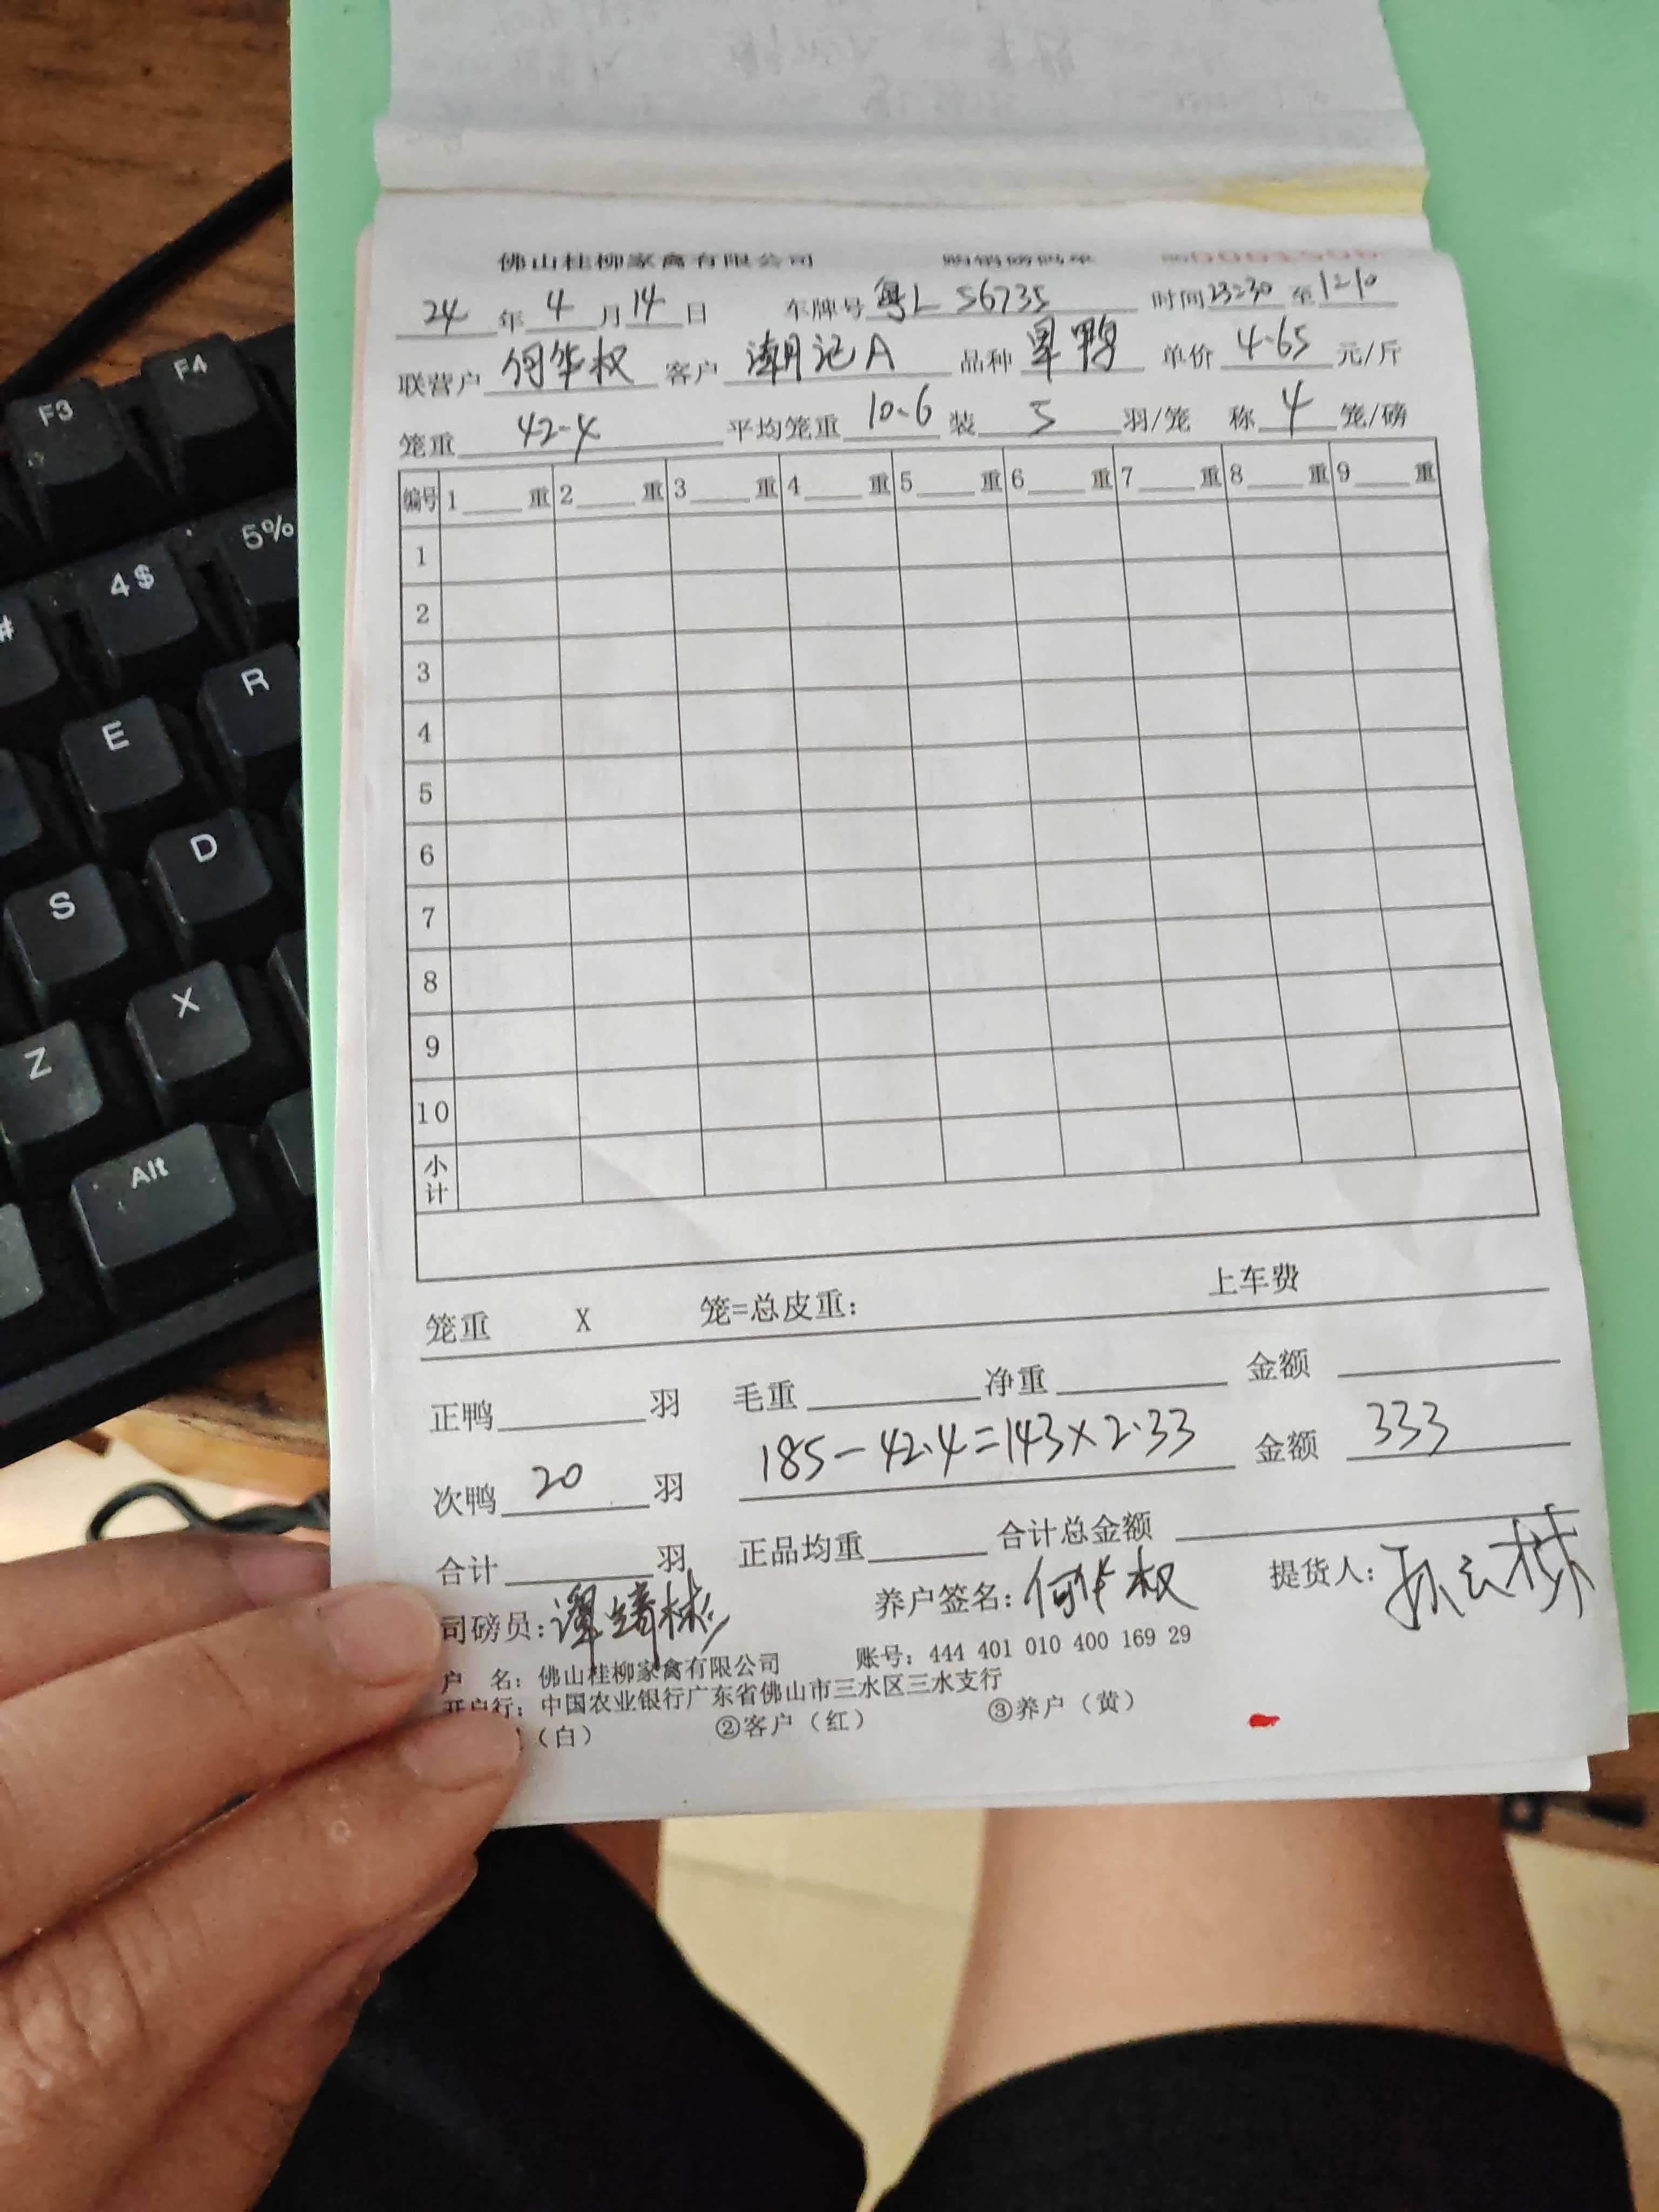 佛山桂柳家禽有限公司 购销磅码单
24年4月14日 车牌号粤L S6735 时间23:30至1210
联营户 何华权 客户 潮记A 品种 旱鸭 单价 4.65 元/斤
笼重 42.4 平均笼重 10.6 装 5 羽/笼 称 4 笼/磅
编号 1 重 2 重 3 重 4 重 5 重 6 重 7 重 8 重 9 重
1
2
3
4
5
6
7
8
9
10
小计
笼重 X 笼=总皮重: 上车费
正鸭 羽 毛重 净重 金额
次鸭 20 羽 185-42.4=143×2.33 金额 333
合计 羽 正品均重 合计总金额
司磅员: 养户签名:何华权 提货人:
户 名: 佛山桂柳家禽有限公司 账号: 444 401 010 400 169 29
开户行: 中国农业银行广东省佛山市三水区三水支行
(白) ②客户(红) ③养户(黄)
F3
F4
4 $
5 %
#
E
R
S
D
Z
X
Alt